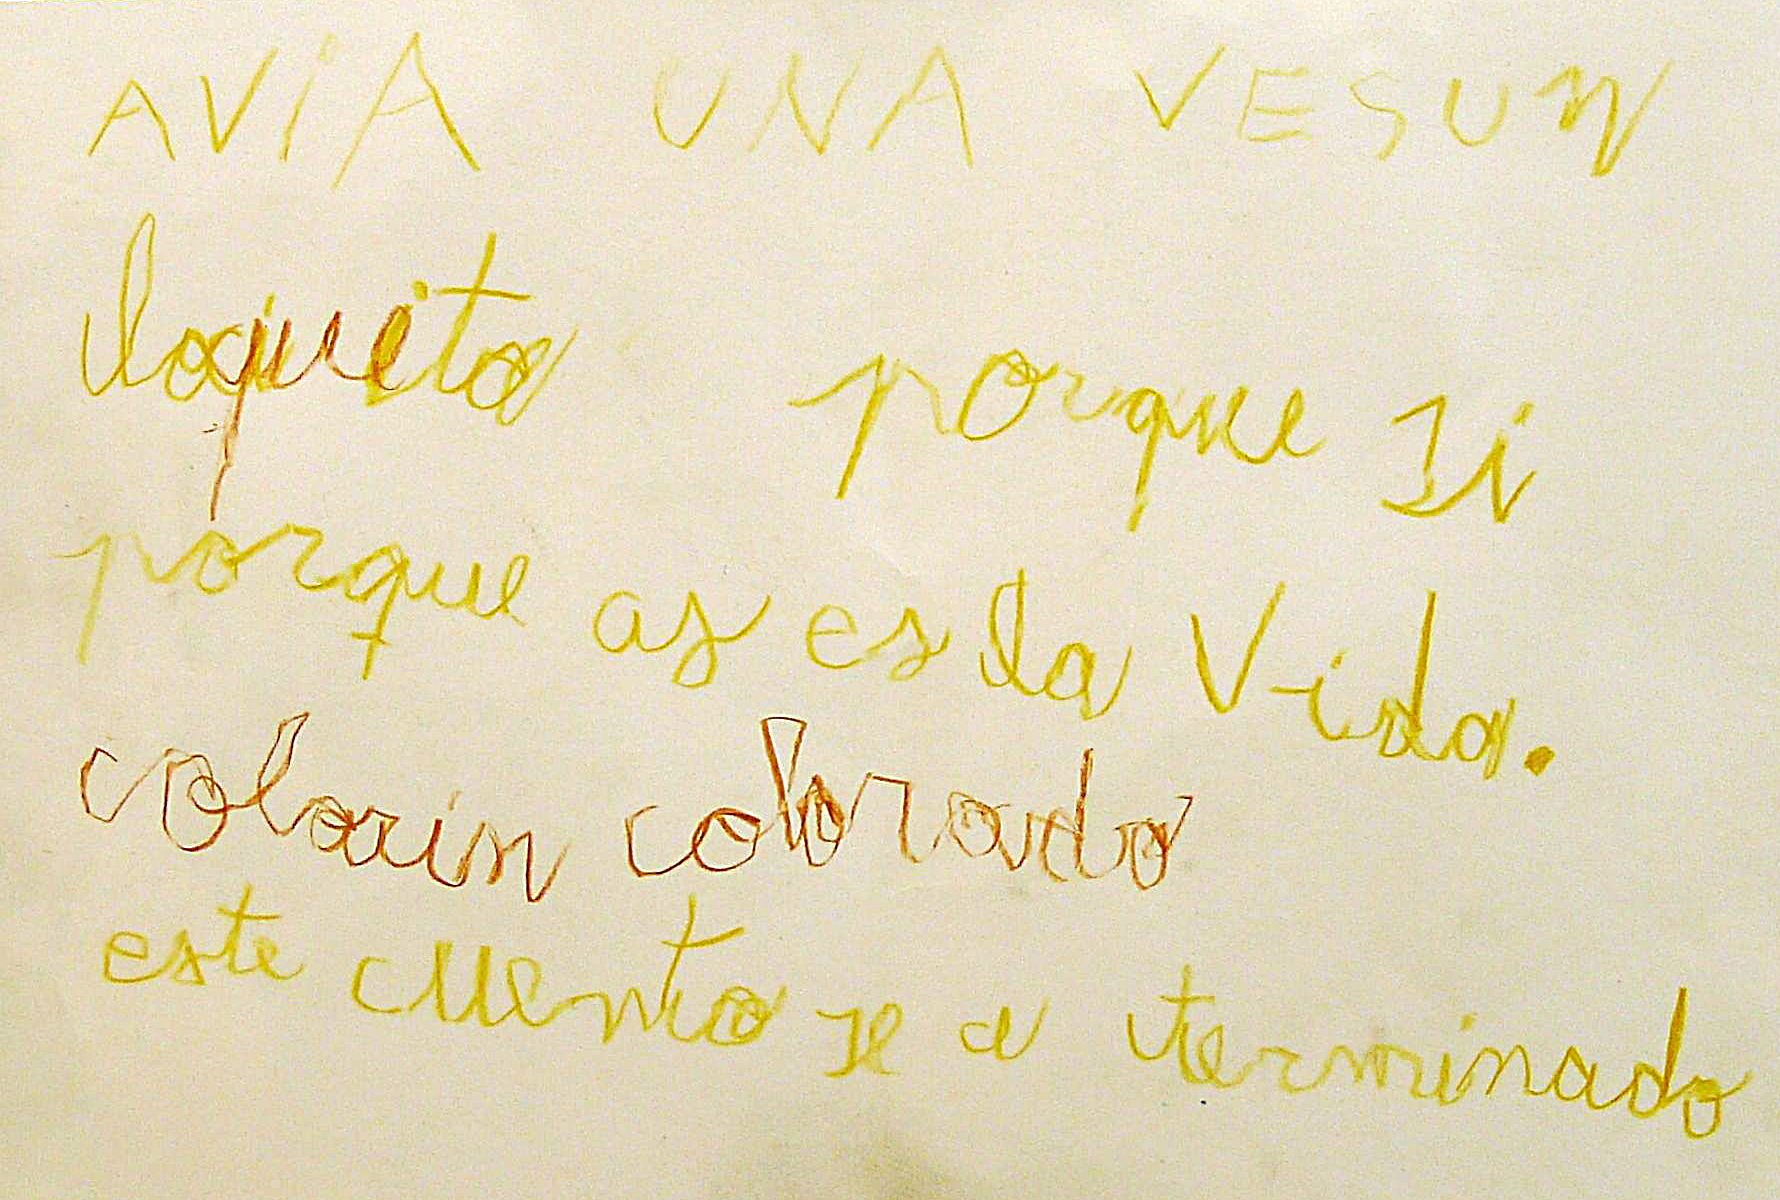 AViA UNA VESUN
loquito porque si
porque as es la Vida.
colarin colorado
este cuento se a terminado